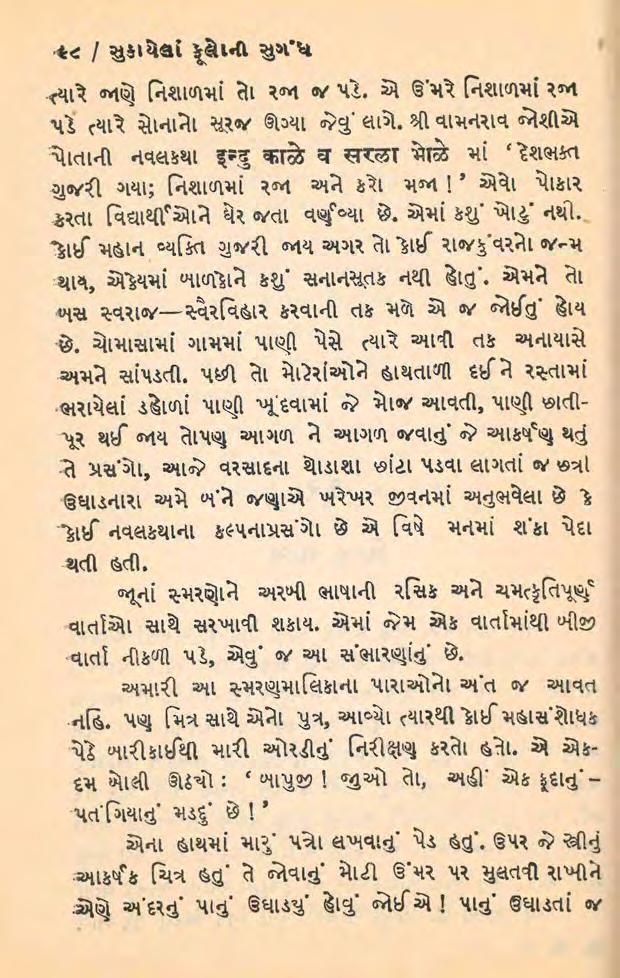 ૨૮ / સુકાયેલાં ફૂલોની સુગંધ
ત્યારે જાણે નિશાળમાં તો રજા જ પડે. એ ઉંમરે નિશાળમાં રજા
પડે ત્યારે સોનાનો સૂરજ ઊગ્યા જેવું લાગે. શ્રી વામનરાવ જોશીએ
પોતાની નવલકથા इन्दु काळे व सरला भोळे માં ‘દેશભક્ત
ગુજરી ગયા; નિશાળમાં રજા અને કરો મજા!’ એવો પોકાર
કરતા વિદ્યાર્થીઓને ઘેર જતા વર્ણવ્યા છે. એમાં કશું ખોટું નથી.
કોઈ મહાન વ્યક્તિ ગુજરી જાય અગર તો કોઈ રાજકુંવરનો જન્મ
થાય, એકેયમાં બાળકોને કશું સનાનસૂતક નથી હોતું. એમને તો
બસ સ્વરાજ—સ્વૈરવિહાર કરવાની તક મળે એ જ જોઈતું હોય
છે. ચોમાસામાં ગામમાં પાણી પેસે ત્યારે આવી તક અનાયાસે
અમને સાંપડતી. પછી તો મોટેરાંઓને હાથતાળી દઈને રસ્તામાં
ભરાયેલાં ડહોળાં પાણી ખૂંદવામાં જે મોજ આવતી, પાણી છાતી-
પૂર થઈ જાય તોપણ આગળ ને આગળ જવાનું જે આકર્ષણ થતું
તે પ્રસંગો, આજે વરસાદના થોડાશા છાંટા પડવા લાગતાં જ છત્રી
ઉઘાડનારા અમે બંને જણાએ ખરેખર જીવનમાં અનુભવેલા છે કે
કોઈ નવલકથાના કલ્પનાપ્રસંગો છે એ વિષે મનમાં શંકા પેદા
થતી હતી.
જૂનાં સ્મરણોને અરબી ભાષાની રસિક અને ચમત્કૃતિપૂર્ણ
વાર્તાઓ સાથે સરખાવી શકાય. એમાં જેમ એક વાર્તામાંથી બીજી
વાર્તા નીકળી પડે, એવું જ આ સંભારણાંનું છે.
અમારી આ સ્મરણમાલિકાના પારાઓનો અંત જ આવત
નહિ. પણ મિત્ર સાથે એનો પુત્ર, આવ્યો ત્યારથી કોઈ મહાસંશોધક
પેઠે બારીકાઈથી મારી ઓરડીનું નિરીક્ષણ કરતો હતો. એ એક-
દમ બોલી ઊઠ્યો : ‘બાપુજી! જુઓ તો, અહીં એક કૂદાનું –
પતંગિયાનું મડદું છે!’
એના હાથમાં મારું પત્રો લખવાનું પેડ હતું. ઉપર જે સ્ત્રીનું
આકર્ષક ચિત્ર હતું તે જોવાનું મોટી ઉંમર પર મુલતવી રાખીને
એણે અંદરનું પાનું ઉઘાડ્યું હોવું જોઈએ! પાનું ઉઘાડતાં જ